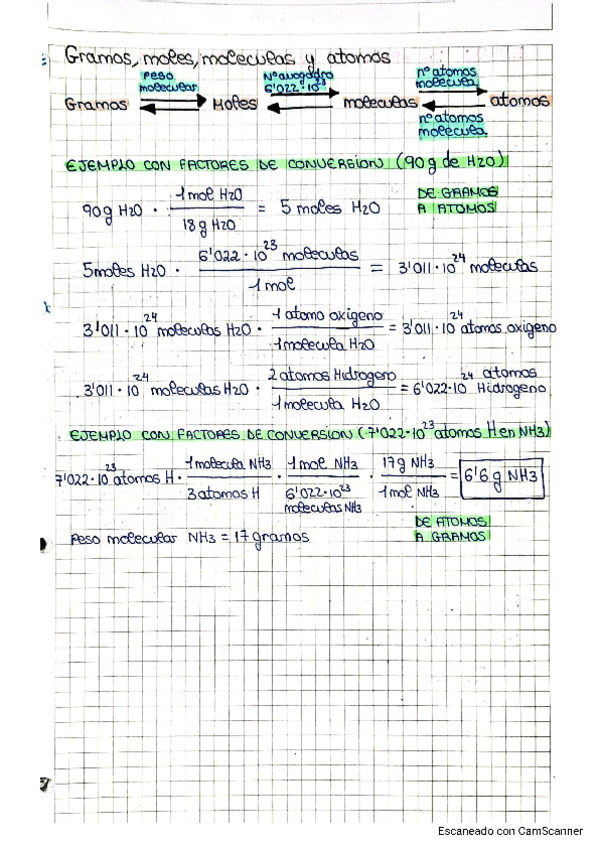 Gramos, moles, moleculas y atomos
Peso molecular
Nºavogadro 6'022·10^23
nº atomos molecula
Gramos Moles moleculas atomos
nº atomos molecula
EJEMPLO CON FACTORES DE CONVERSION (90g de H2O)
90g H2O · 1 mol H2O / 18 g H2O = 5 moles H2O
DE GRAMOS A ATOMOS
5moles H2O · 6'022·10^23 moleculas / 1 mol = 3'011·10^24 moleculas
3'011·10^24 moleculas H2O · 1 atomo oxigeno / 1 molecula H2O = 3'011·10^24 atomos oxigeno
3'011·10^24 moleculas H2O · 2 atomos Hidrogeno / 1 molecula H2O = 6'022·10^24 atomos Hidrogeno
EJEMPLO CON FACTORES DE CONVERSION (7'022·10^23 atomos H en NH3)
7'022·10^23 atomos H · 1 molecula NH3 / 3 atomos H · 1 mol NH3 / 6'022·10^23 moleculas NH3 · 17g NH3 / 1 mol NH3 = 6'6 g NH3
DE ATOMOS A GRAMOS
Peso molecular NH3 = 17 gramos
Escaneado con CamScanner